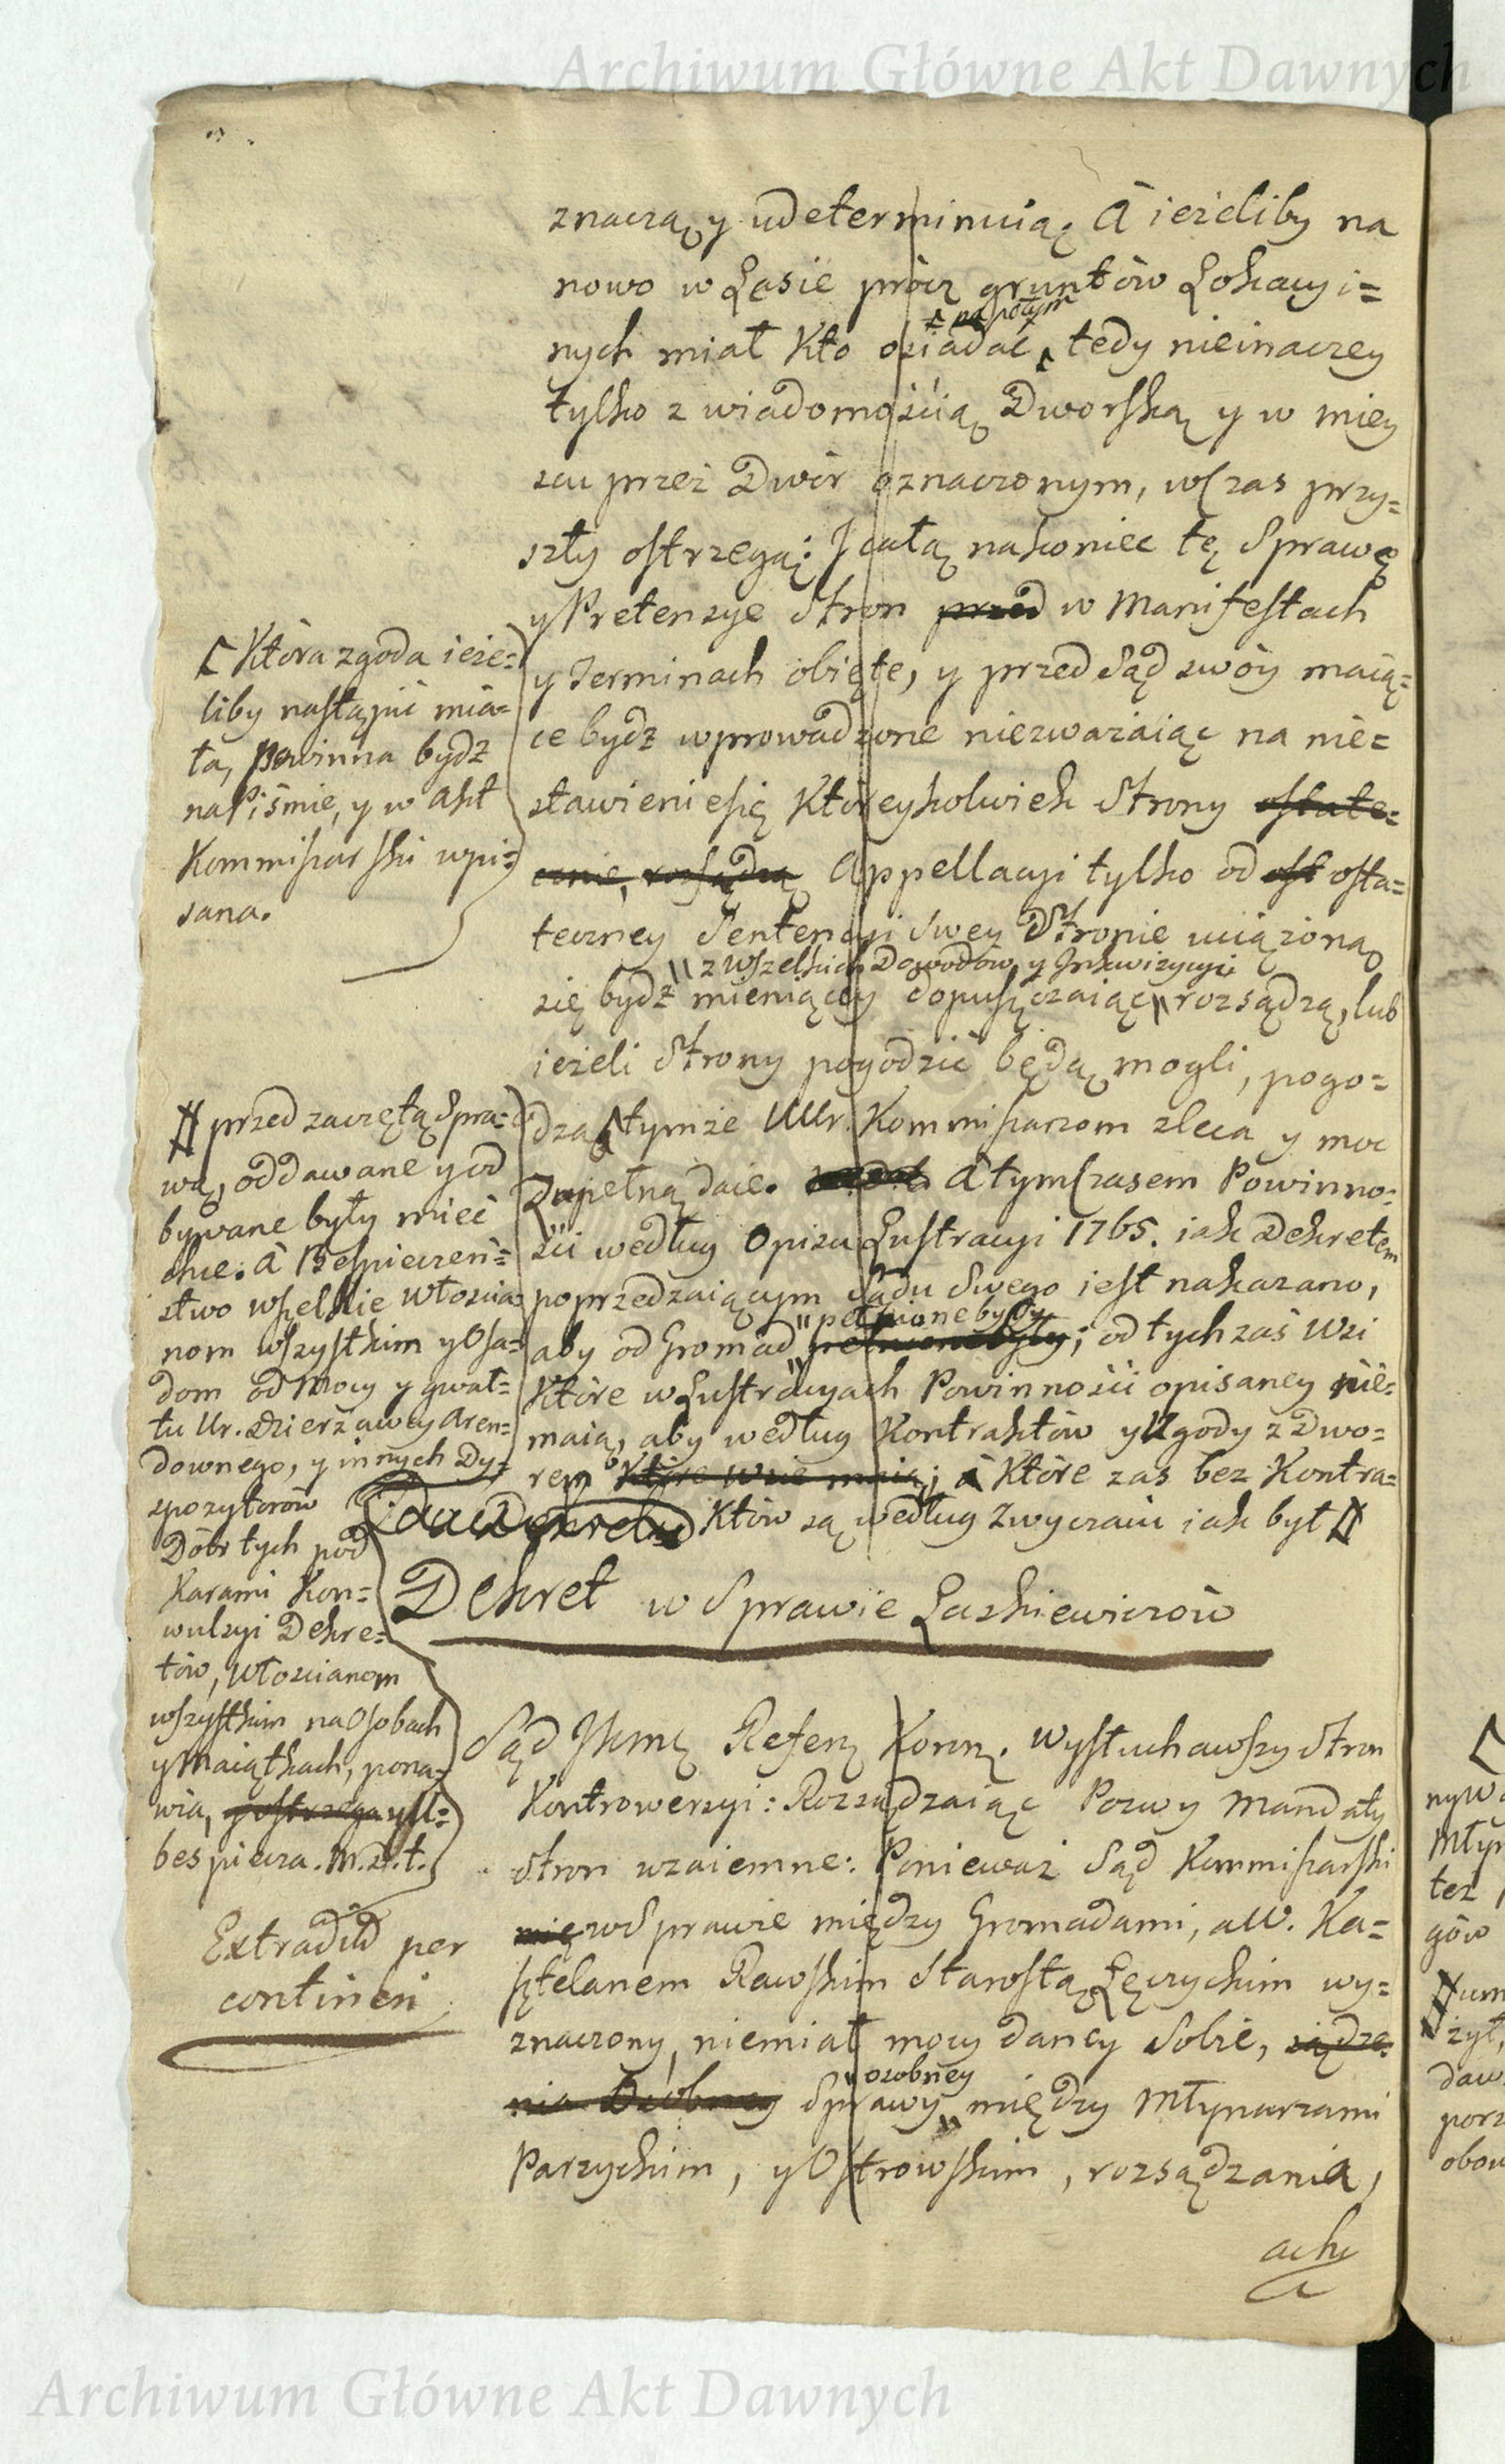 Archiwum Główne Akt Dawnych
znaczą y udeterminuią. A ieżeliby na
nowo w Lasie prócz gruntów Lokacyi=
nych miał Kto osiadać
na potym
tedy nieinaczey
tylko z wiadomością Dworską y w miey
scu przez Dwór oznaczonym, wczas przy=
szły ostrzegą: J całą nakoniec tę Sprawę
y Pretensye Stron przed w Manifestach
y Terminach obięte, y przed Sąd swóy maią=
ce bydź wprowadzone niezważaiąc na nie=
stawieniesię Któreykolwiek Strony ostate=
cznie, rozsądzą Appellacyi tylko od ost osta=
teczney Sentencyi swey Stronie uciążoną
się bydź mieniącey dopuszczaiąc
z wszelkich Dowodów y Jnkwizycyi
rozsądzą, lub
ieżeli Strony pogodzić będą mogli, pogo=
dzą tymże UUr. Kommisarzom zleca y moc
Zupełną daie. A tymczasem Powinno=
ści według Opisu Lustracyi 1765. iak Dekretem
poprzedzaiącym Sądu Swego iest nakazano,
aby od Gromad
pełnione były
pełnione były; od tych zaś Wsi
Które w Lustracyach Powinności opisaney nie=
maią, aby według Kontraktów y Ugody z Dwo=
rem Które wsie maią; à Które zaś bez Kontra=
Któw są według Zwyczaiu iak był
Która zgoda ieże=
liby nastąpić mia=
ła, Powinna bydź
na Piśmie, y w Akt
Kommisarski wpi=
sana.
przed zaczętą Spra=
wą, oddawane y od
bywane były mieć
chce. A Bespieczeń=
stwo wszelkie Włościa=
nom wszystkim y Osa=
dom od Mocy y gwał=
tu Ur. Dzierżawcy Aren=
downego, y innych Dy=
spozytorów
Dóbr tych pod
Karami Kon=
wulsyi Dekre=
tów, Włoscianom
wszystkim na Osobach
y Maiątkach, pona=
wia, y ostrzega y U=
bespiecza. M.D.t.
Dekret w Sprawie Laskiewiczów
Extradid per
continen
Sąd Jkmci Referen Koronn. Wysłuchawszy Stron
Kontrowersyi: Rozsądzaiąc Pozwy Mandaty
Stron wzaiemne: Ponieważ Sąd Kommisarski
mię w Sprawie między Gromadami, a W. Ka=
sztelanem Rawskim Starostą Łęczyckim wy=
znaczony, niemiał mocy daney Sobie, sądze=
nia Osobney Sprawy
osobney
między Młynarzami
Parzyckim, y Ostrowskim, rozsądzania,
nyw
Młyn
też
gów
um
żył,
daw
porz
obow
Archiwum Główne Akt Dawnych